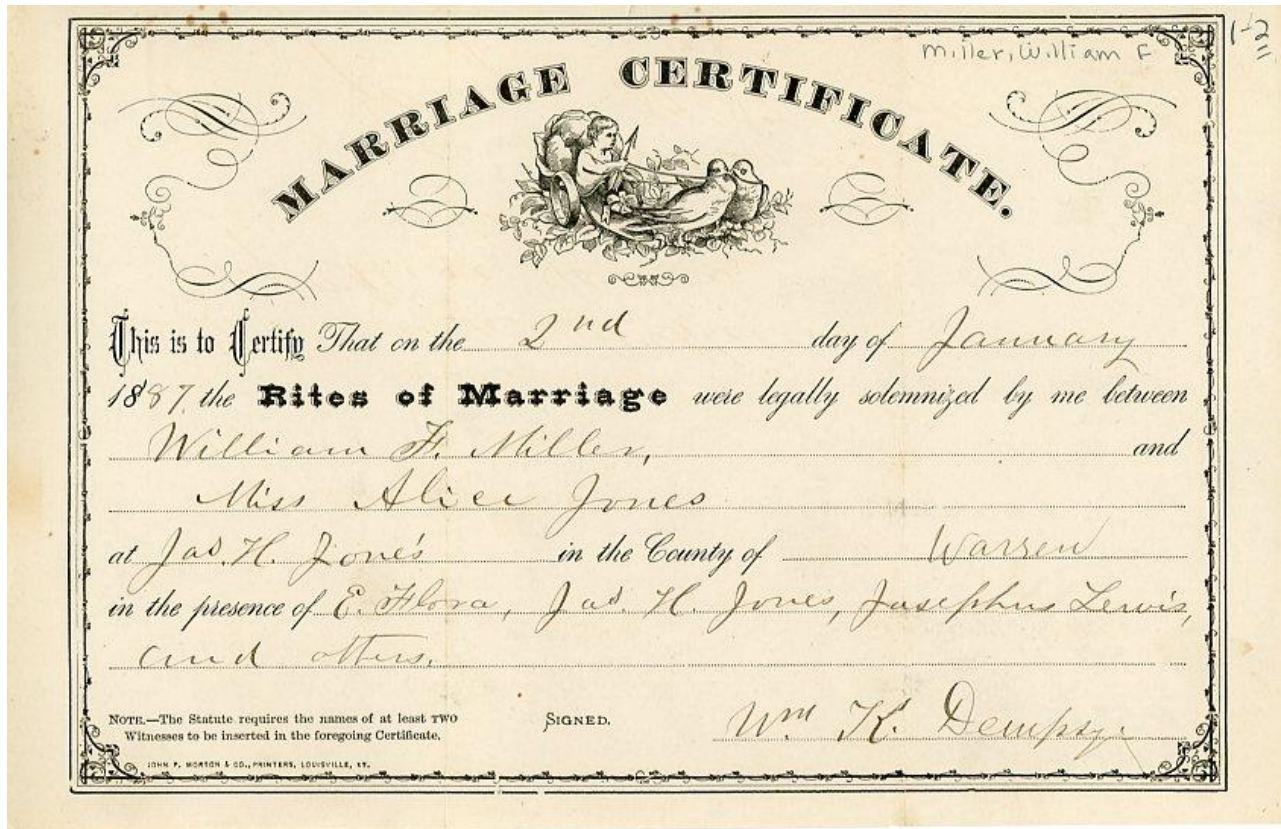 Miller, William F
MARRIAGE CERTIFICATE.
This is to Certify That on the 2nd day of January
1887 the Rites of Marriage were legally solemnized by me between
William F. Miller, and
Miss Alice Jones
at Jas. H. Jone's in the County of Warren
in the presence of E. Flora, Jas. H. Jones, Josephus Lewis,
and others.
NOTE.—The Statute requires the names of at least TWO
Witnesses to be inserted in the foregoing Certificate.
SIGNED,
Wm K. Dempsy
JOHN P. MORTON & CO., PRINTERS, LOUISVILLE, KY.